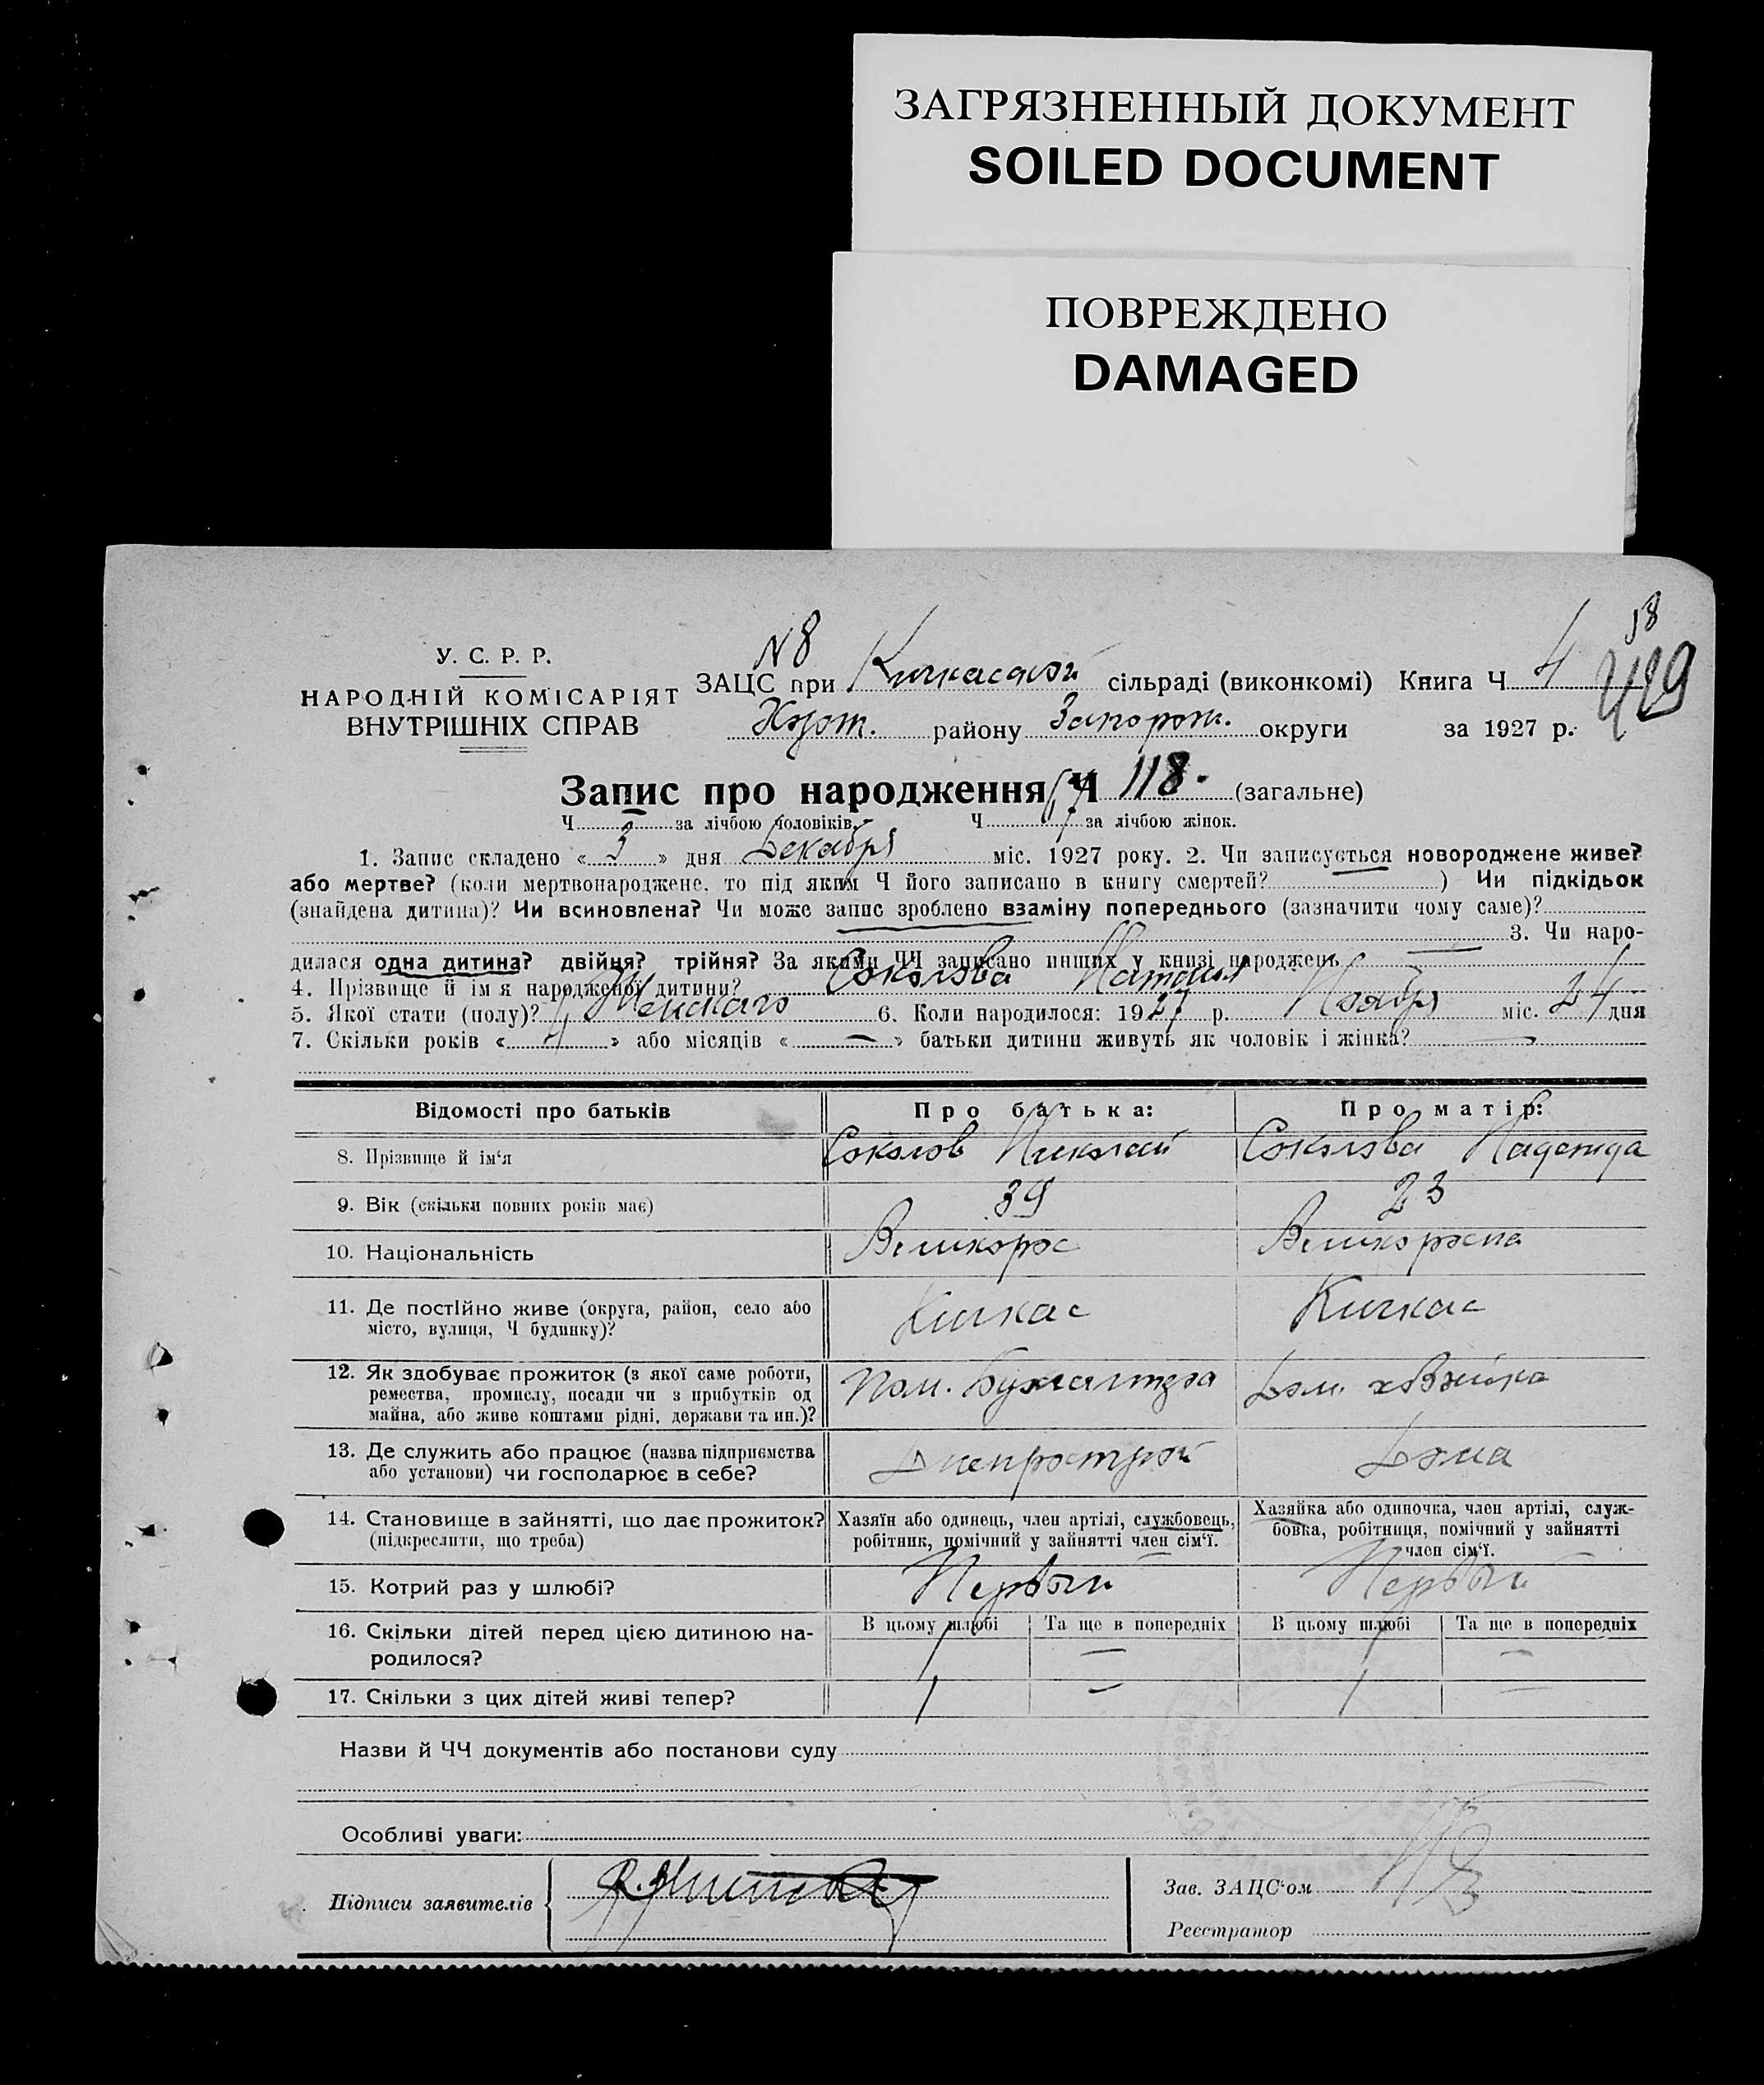 ЗАГРЯЗНЕННЫЙ ДОКУМЕНТ
SOILED DOCUMENT
ПОВРЕЖДЕНО
DAMAGED
У. С. Р. Р.
НАРОДНІЙ КОМІСАРІЯТ
ВНУТРІШНІХ СПРАВ
N 8
18
ЗАЦС при Кичкаской сільраді (виконкомі) Книга Ч 4
Хорт. району Запорож. округи за 1927 р.
Запис про народження Ч 118. (загальне)
Ч за лічбою чоловіків. Ч за лічбою жінок.
1. Запис складено « 3 » дня Декабря міс. 1927 року. 2. Чи записується новороджене живе?
або мертве? (коли мертвонароджене, то під яким Ч його записано в книгу смертей? ) Чи підкідьок
(знайдена дитина)? Чи всиновлена? Чи може запис зроблено взаміну попереднього (зазначити чому саме)?
3. Чи наро-
дилася одна дитина? двійня? трійня? За якими ЧЧ записано инших у книзі народжень —
4. Прізвище й ім'я народженої дитини? Соколова Наталия
5. Якої стати (полу)? Женскаго 6. Коли народилося: 1927 р. Ноября міс. 24 дня
7. Скільки років « 4 » або місяців « — » батьки дитини живуть як чоловік і жінка? —
Відомості про батьків Про батька: Про матір:
8. Прізвище й ім'я Соколов Николай Соколова Надежда
9. Вік (скільки повних років має) 39 23
10. Національність Великорос Великороска
11. Де постійно живе (округа, район, село або
місто, вулиця, Ч будинку)? Кичкас Кичкас
12. Як здобуває прожиток (з якої саме роботи,
ремества, промислу, посади чи з прибутків од
майна, або живе коштами рідні, держави та ин.)? Пом. Бухгалтера Дом. хозяйка
13. Де служить або працює (назва підприємства
або установи) чи господарює в себе? Днепрострой Дома
14. Становище в зайнятті, що дає прожиток?
(підкреслити, що треба)
Хазяїн або одинець, член артілі, службовець,
робітник, помічний у зайнятті член сім'ї.
Хазяйка або одиночка, член артілі, служ-
бовка, робітниця, помічний у зайнятті
член сім'ї.
15. Котрий раз у шлюбі? Первый Первый
16. Скільки дітей перед цією дитиною на-
родилося?
В цьому шлюбі Та ще в попередніх В цьому шлюбі Та ще в попередніх
1 — 1 —
17. Скільки з цих дітей живі тепер? 1 — 1 —
Назви й ЧЧ документів або постанови суду
Особливі уваги:
Підписи заявителів
Зав. ЗАЦС'ом
Реєстратор